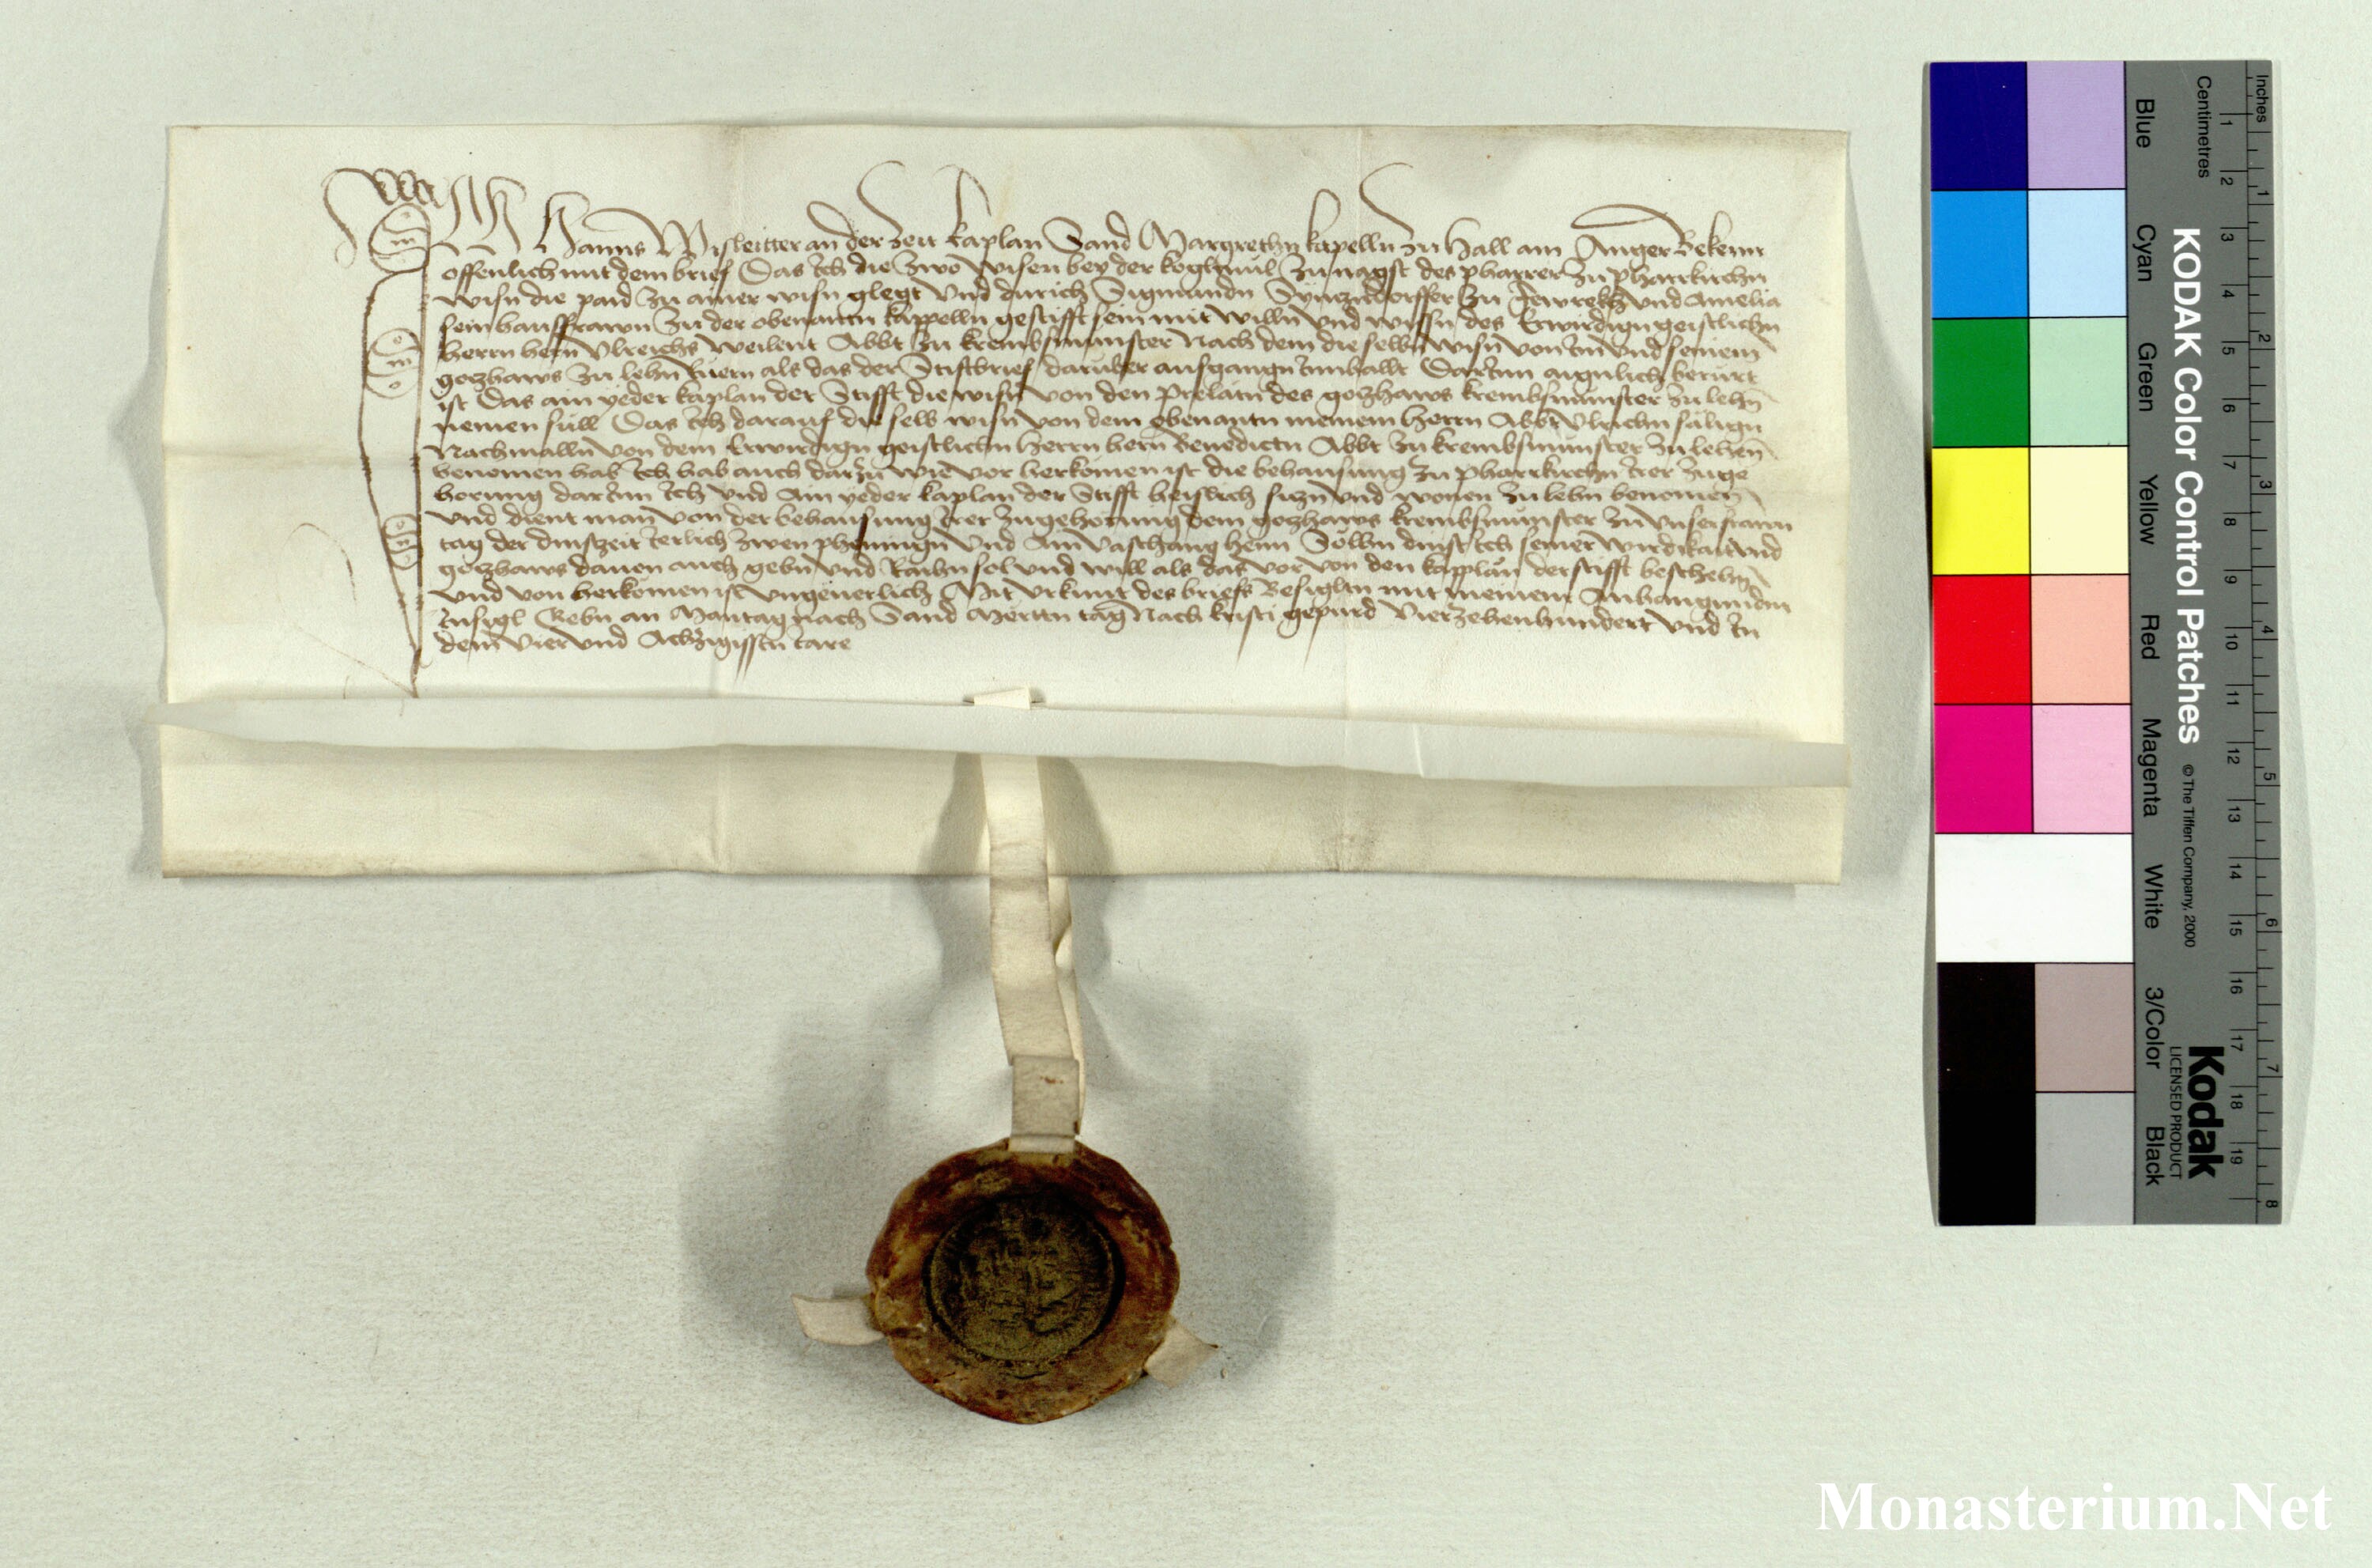 Ich Hanns Wisleitter an der zeit kaplan Sand Margrethn kapelln zu Hall am Anger Bekenn
offenlich mit dem brief Das ich die zwo wisen bey der koglmül zunagst des pharrer zu pharrkirchn
wisn die paid zu ainer wisn glegt Und durich Sigmundn und Amelia
sein hausfrawn zu der obenantn kappelln gestifft sein mit willn und wissn des Erwirdign geistlichn
herrn hern Ulreichs weilent Abbt zu krembsmunster Nach dem die selbn wisn von im und seinem
gotzhaws zu lehn ruern als das der Stiftbrief daruber ausgangn innhallt Darinn aignlich berürt
ist Das ain yeder kaplan der Stifft die wisn von den prelatn des gotzhaws krembsmunster zu lehn
nemen sull Das ich darauf die selb wisn von dem obenantn meinem herrn Abbt Ulrichn sälign
Nachmalln von dem Erwirdign geistlichn herrn hern Benedictn Abbt zu krembsmunster zu lehen
benomen hab Ich hab auch darzu wie vor herkomen ist die behausung zu pharrkirchn irer zuge
horung darinn ich und ain yeder kaplan der Stifft heislich sitzn und wonen zu lehn benomen
und dient man von der behausung irer zugehorung dem gotzhaws krembsmunster zu unserfrawn
tag der dinstzeit ierlich zwen phenning und ain vaschang henn Sölhn dinst ich seiner wirdikait und
gotzhaws dauon auch gebn und Raihn sol und will als das vor von den kapplän der stifft beschehn
und von herkomen ist ungeuerlich Mit urkunt des briefs Besigltn mit meinem Anhangundem
Insigl Gebn an Mantag nach Sand Mertn tag Nach kristi gepurd Vierzehenhundert und in
dem Vier und Achzigisstn iare
Inches
Centimetres
1 2 3 4 5 6 7 8 9 10 11 12 13 14 15 16 17 18 19
1 2 3 4 5 6 7 8
KODAK Color Control Patches
© The Tiffen Company, 2000
Kodak
LICENSED PRODUCT
Blue Cyan Green Yellow Red Magenta White 3/Color Black
Monasterium.Net